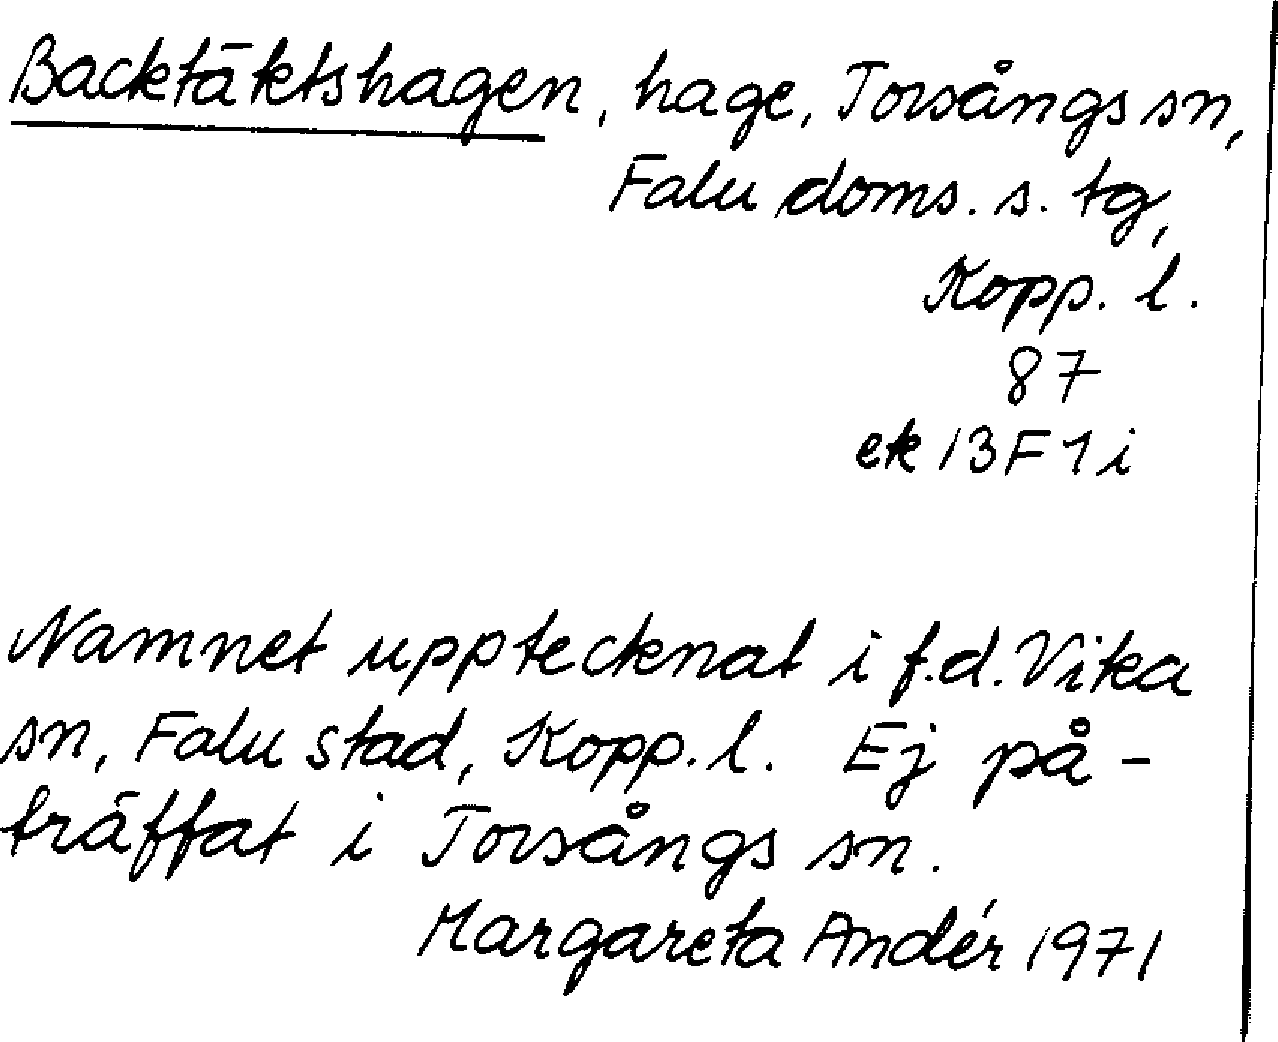 Backtäktshagen, hage, Torsångs sn,
Falu doms. s. tg,
Kopp. l.
87
ek 13F1i
Namnet upptecknat i f.d. Vika
sn, Falu stad, Kopp. l. Ej på-
träffat i Torsångs sn.
Margareta Andér 1971